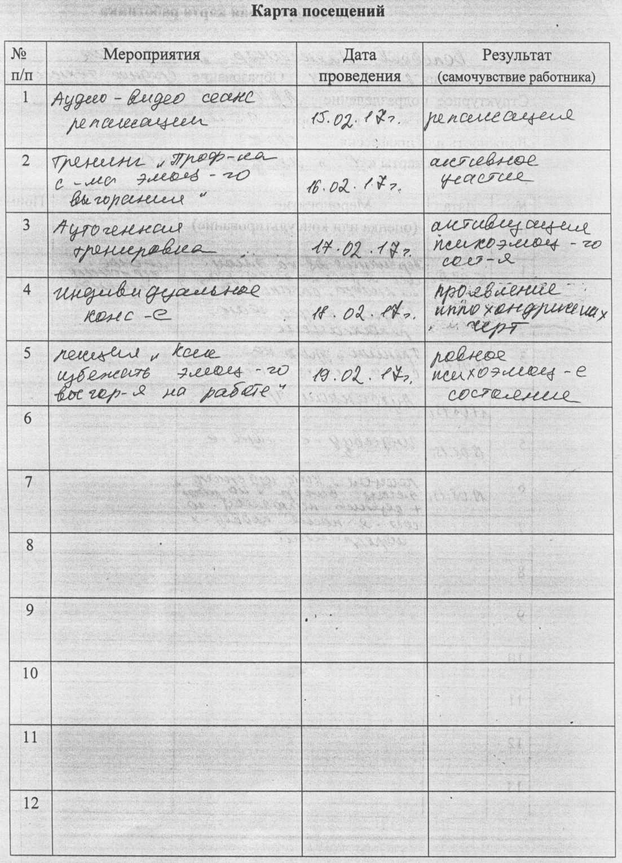 Карта посещений
№ п/п Мероприятия Дата проведения Результат (самочувствие работника)
1 Аудио-видео сеанс 15.02.17г. релаксация
релаксации
2 Тренинг „Проф-ка 16.02.17г. активное
с-ма эмоц-го участие
выгорания“
3 Аутогенная 17.02.17г. активизация
тренировка психоэмоц-го
сост-я
4 Индивидуальное 18.02.17г. проявление
конс-е иппохондрических
черт
5 лекция „Как 19.02.17г. ровное
избежать эмоц-го психоэмоц-е
выгор-я на работе“ состояние
6
7
8
9
10
11
12